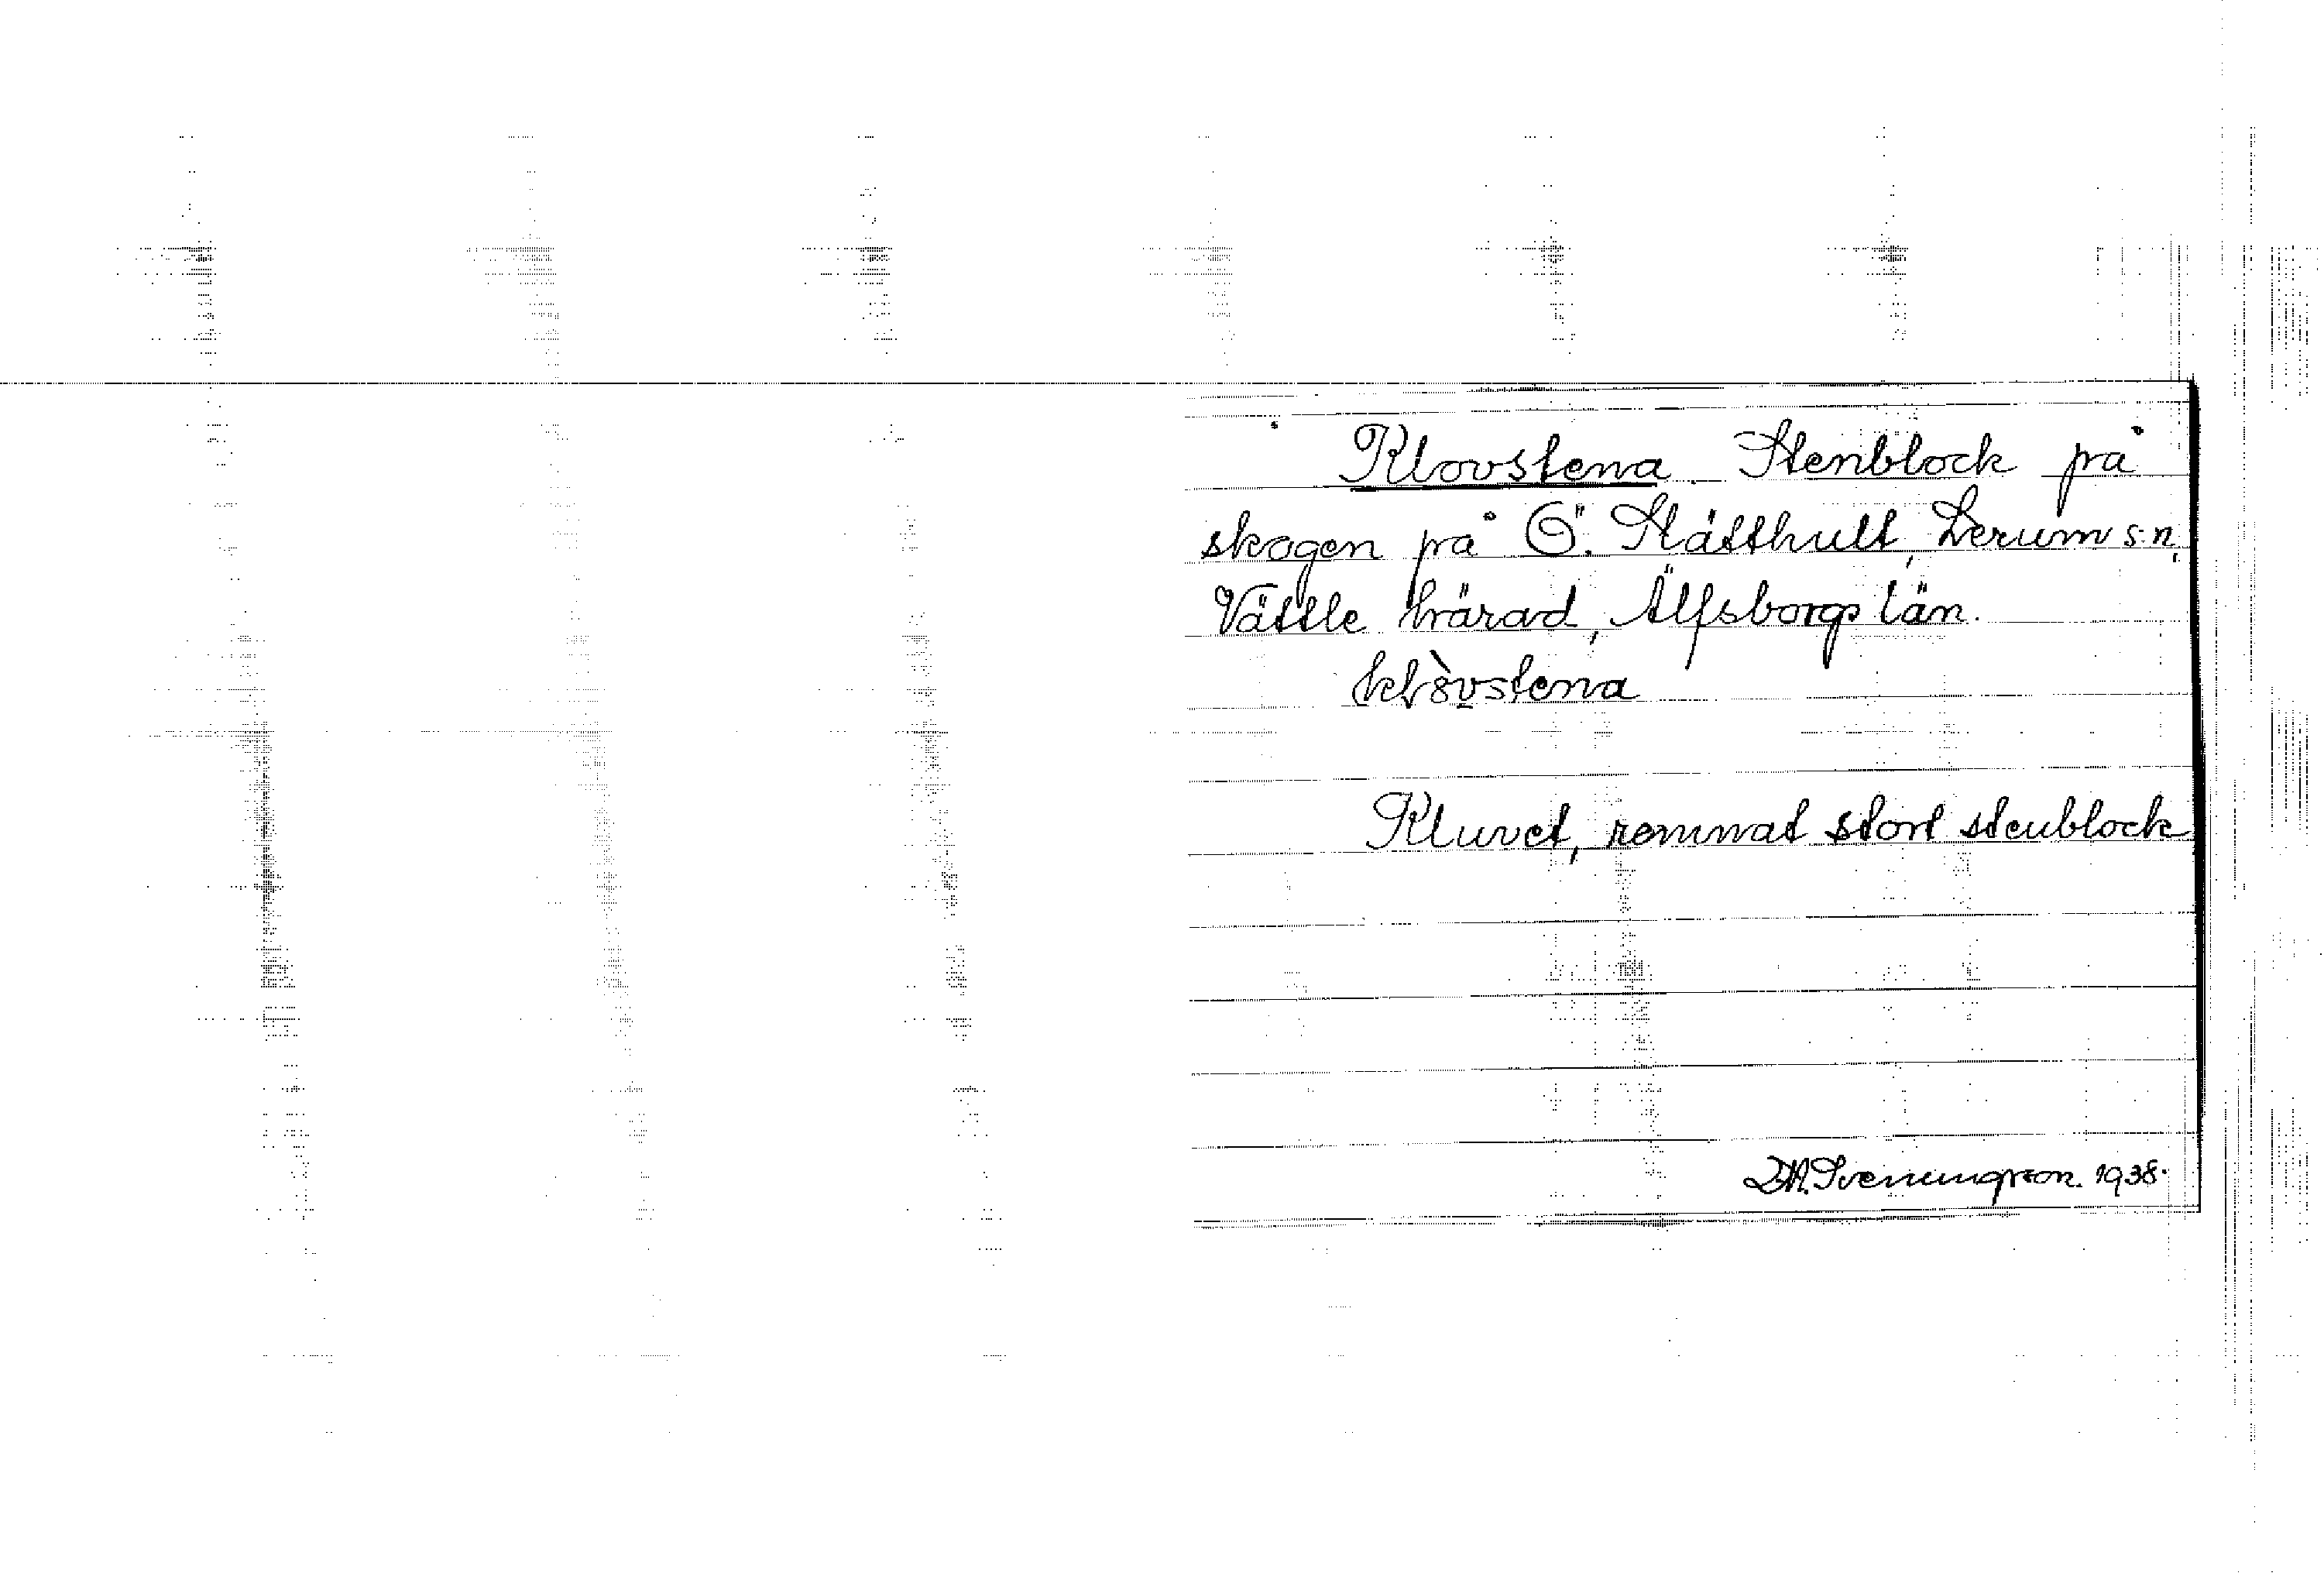 Klovstena. Stenblock på
skogen på Ö. Stätthult, Lerum s:n,
Vättle härad, Älfsborgs län.
klòvstena
Kluvet, remnat stort stenblock
D.A. Sveningson. 1938.